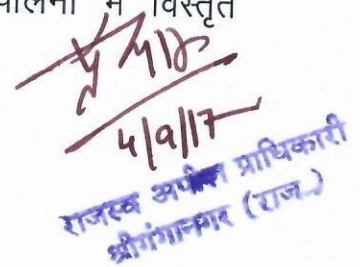 में विस्तृत
4/9/17
राजस्व अपील प्राधिकारी
श्रीगंगानगर (राज.)